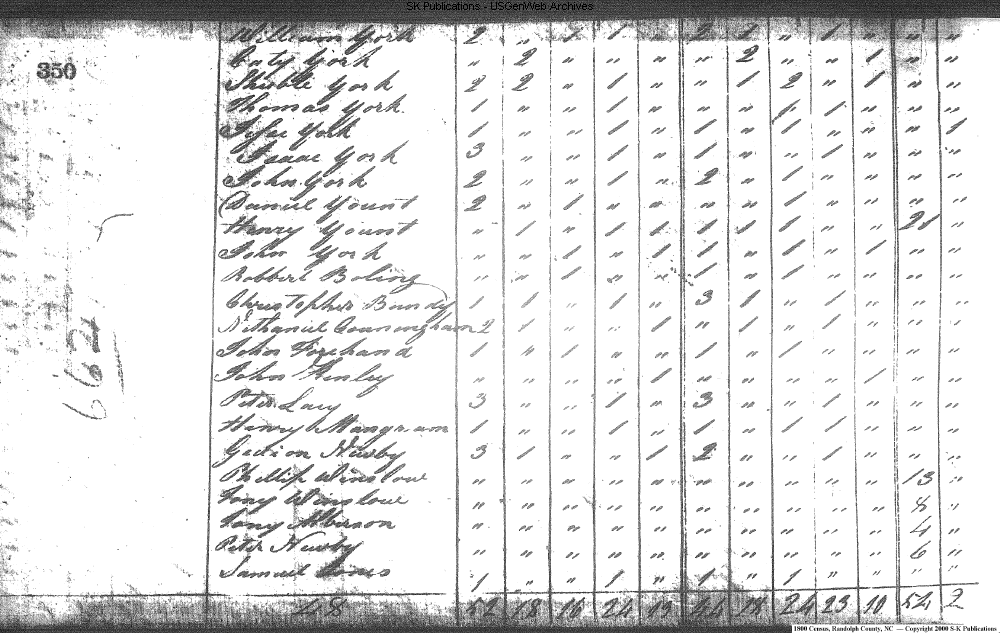 SK Publications - USGenWeb Archives
350
William York 2 " 1 1 " 2 1 " 1 " " "
Caty York " 2 " " " " 2 " " 1 " "
York 2 2 " 1 " " 1 2 " 1 " "
Thomas York 1 " " 1 " " " 1 1 " " "
York 1 " " 1 " 1 " 1 " " " 1
Isaac York 3 " " 1 " 1 " " 1 " " "
John York 2 " " 1 " 2 " 1 " " " "
Daniel Yount 2 " 1 " " " " 1 " " " "
Henry Yount " 1 " 1 1 1 1 1 " " "
John York " " 1 " 1 1 " 1 " 1 " "
Robbert Boling " " 1 " " 1 " 1 " " " "
Christopher Bundy 1 1 " 1 " 3 1 " 1 " " "
Nathaniel Conningham 2 1 " " 1 " 1 " 1 " " "
John Forehand 1 " 1 " " 1 " 1 " " " "
John Henley " " " " 1 " " " " 1 " "
Peter Lacy 3 " " 1 " 3 " " 1 " " "
Henry Mangram 1 " " 1 " 1 " 1 1 " " "
Gedion Newby 3 1 " " 1 2 " " 1 " " "
Phillip Winslow " " " " " " " " " " 13 "
Winslow " " " " " " " " " " 8 "
Albinson " " " " " " " " " " 4 "
Peter Newby " " " " " " " " " " 6 "
Samuel Jones 1 " " 1 " 1 " 1 " " " "
48 52 18 16 24 13 44 18 24 23 10 54 2
662
1800 Census, Randolph County, NC — Copyright 2000 S-K Publications